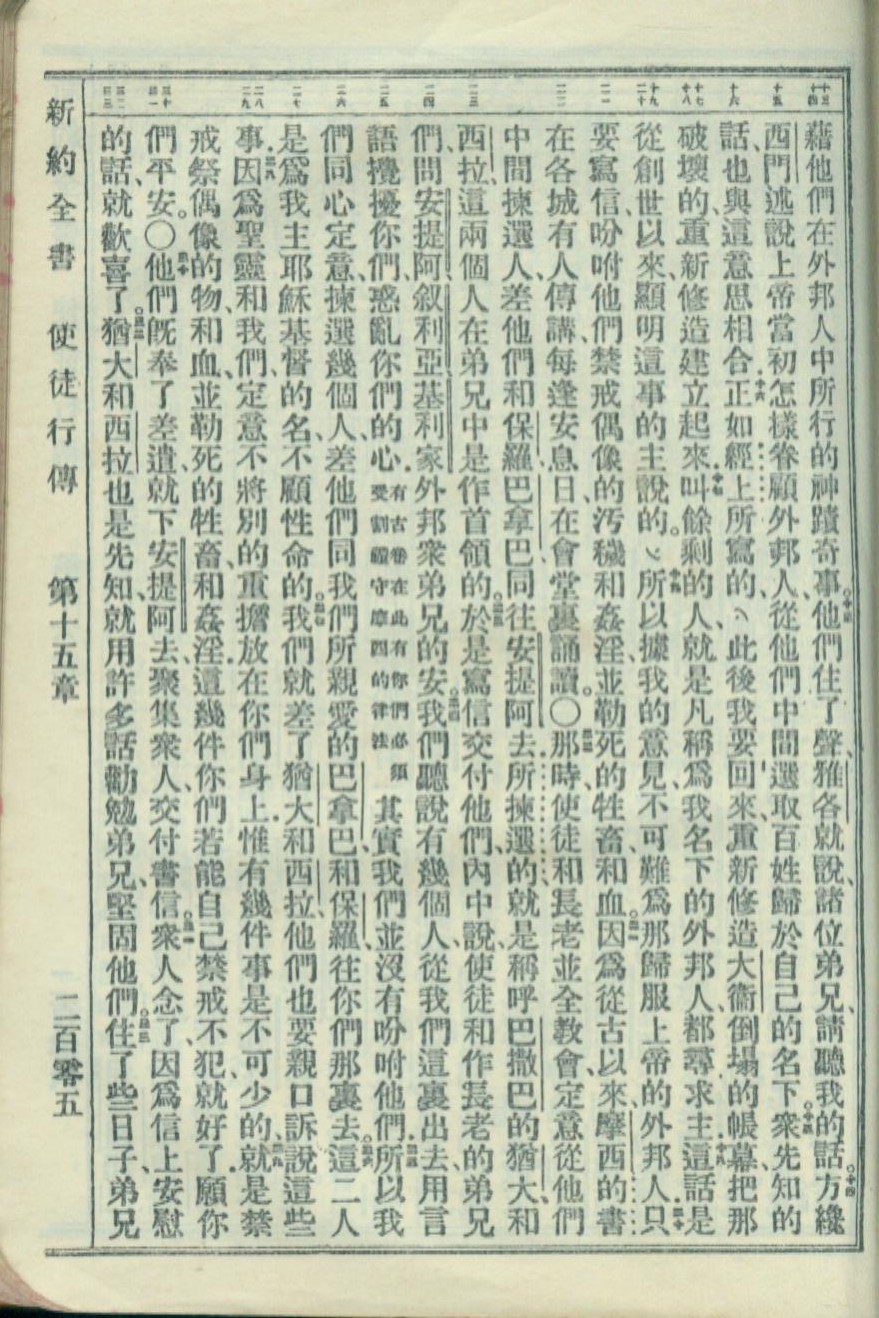 藉他們在外邦人中所行的神蹟奇事他們住了聲雅各就說諸位弟兄請聽我的話方纔
西門述說上帝當初怎樣眷顧外邦人從他們中間選取百姓歸於自己的名下衆先知的
話也與這意思相合正如經上所寫的此後我要回來重新修造大衞倒塌的帳幕把那
破壞的重新修造建立起來叫餘剩的人就是凡稱爲我名下的外邦人都尋求主這話是
從創世以來顯明這事的主說的所以據我的意見不可難爲那歸服上帝的外邦人只
要寫信吩咐他們禁戒偶像的汚穢和姦淫並勒死的牲畜和血因爲從古以來摩西的書
在各城有人傳講每逢安息日在會堂裏誦讀。〇那時使徒和長老並全教會定意從他們
中間揀選人差他們和保羅巴拿巴同往安提阿去所揀選的就是稱呼巴撒巴的猶大和
西拉這兩個人在弟兄中是作首領的於是寫信交付他們內中說使徒和作長老的弟兄
們問安提阿叙利亞基利家外邦衆弟兄的安我們聽說有幾個人從我們這裏出去用言
語攪擾你們惑亂你們的心有古卷在此有你們必須受割禮守摩西的律法其實我們並沒有吩咐他們所以我
們同心定意揀選幾個人差他們同我們所親愛的巴拿巴和保羅往你們那裏去這二人
是爲我主耶穌基督的名不顧性命的我們就差了猶大和西拉他們也要親口訴說這些
事因爲聖靈和我們定意不將別的重擔放在你們身上惟有幾件事是不可少的就是禁
戒祭偶像的物和血並勒死的牲畜和姦淫這幾件你們若能自己禁戒不犯就好了願你
們平安。〇他們旣奉了差遣就下安提阿去聚集衆人交付書信衆人念了因爲信上安慰
的話就歡喜了猶大和西拉也是先知就用許多話勸勉弟兄堅固他們住了些日子弟兄
新約全書 使徒行傳 第十五章 二百零五